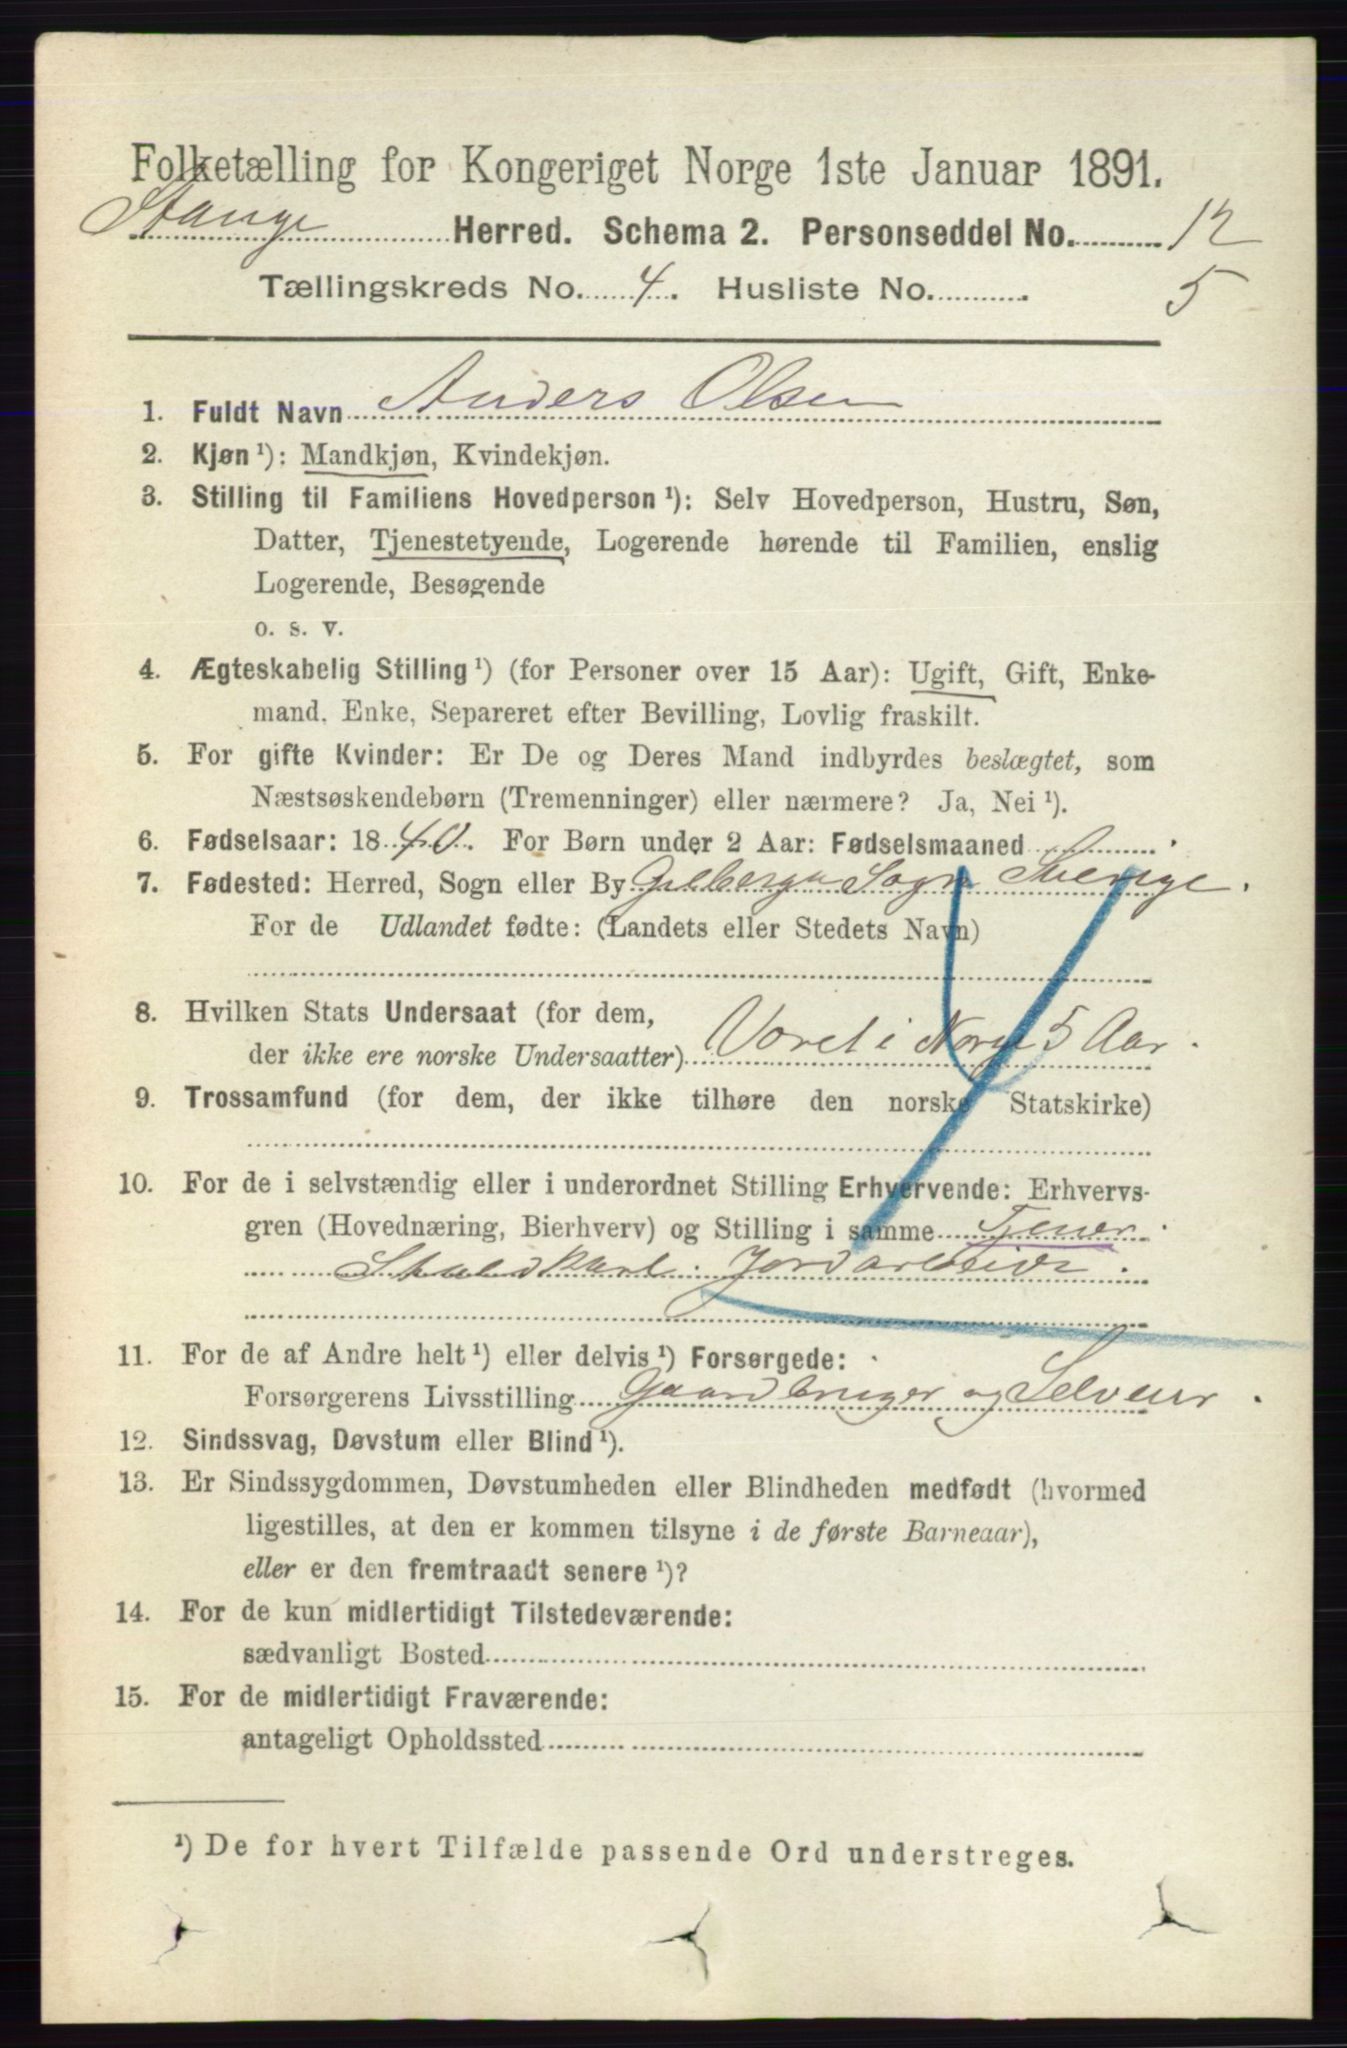 Folketælling for Kongeriget Norge 1ste Januar 1891.
Stange Herred. Schema 2. Personseddel No. 12
Tællingskreds No. 4. Husliste No. 5
1. Fuldt Navn Anders Olsen
2. Kjøn ¹): Mandkjøn, Kvindekjøn.
3. Stilling til Familiens Hovedperson ¹): Selv Hovedperson, Hustru, Søn,
Datter, Tjenestetyende, Logerende hørende til Familien, enslig
Logerende, Besøgende
o. s. v.
4. Ægteskabelig Stilling ¹) (for Personer over 15 Aar): Ugift, Gift, Enke-
mand, Enke, Separeret efter Bevilling, Lovlig fraskilt.
5. For gifte Kvinder: Er De og Deres Mand indbyrdes beslægtet, som
Næstsøskendebørn (Tremenninger) eller nærmere? Ja, Nei ¹).
6. Fødselsaar: 1840. For Børn under 2 Aar: Fødselsmaaned
7. Fødested: Herred, Sogn eller By Gilberga Sogn Sverige.
For de Udlandet fødte: (Landets eller Stedets Navn)
8. Hvilken Stats Undersaat (for dem,
der ikke ere norske Undersaatter) Voret i Norge 5 Aar.
9. Trossamfund (for dem, der ikke tilhøre den norske Statskirke)
10. For de i selvstændig eller i underordnet Stilling Erhvervende: Erhvervs-
gren (Hovednæring, Bierhverv) og Stilling i samme Tjener
Staldkarl. Jordarbeide.
11. For de af Andre helt ¹) eller delvis ¹) Forsørgede:
Forsørgerens Livsstilling Gaardbruger og Selveier.
12. Sindssvag, Døvstum eller Blind ¹).
13. Er Sindssygdommen, Døvstumheden eller Blindheden medfødt (hvormed
ligestilles, at den er kommen tilsyne i de første Barneaar),
eller er den fremtraadt senere ¹)?
14. For de kun midlertidigt Tilstedeværende:
sædvanligt Bosted
15. For de midlertidigt Fraværende:
antageligt Opholdssted
¹) De for hvert Tilfælde passende Ord understreges.